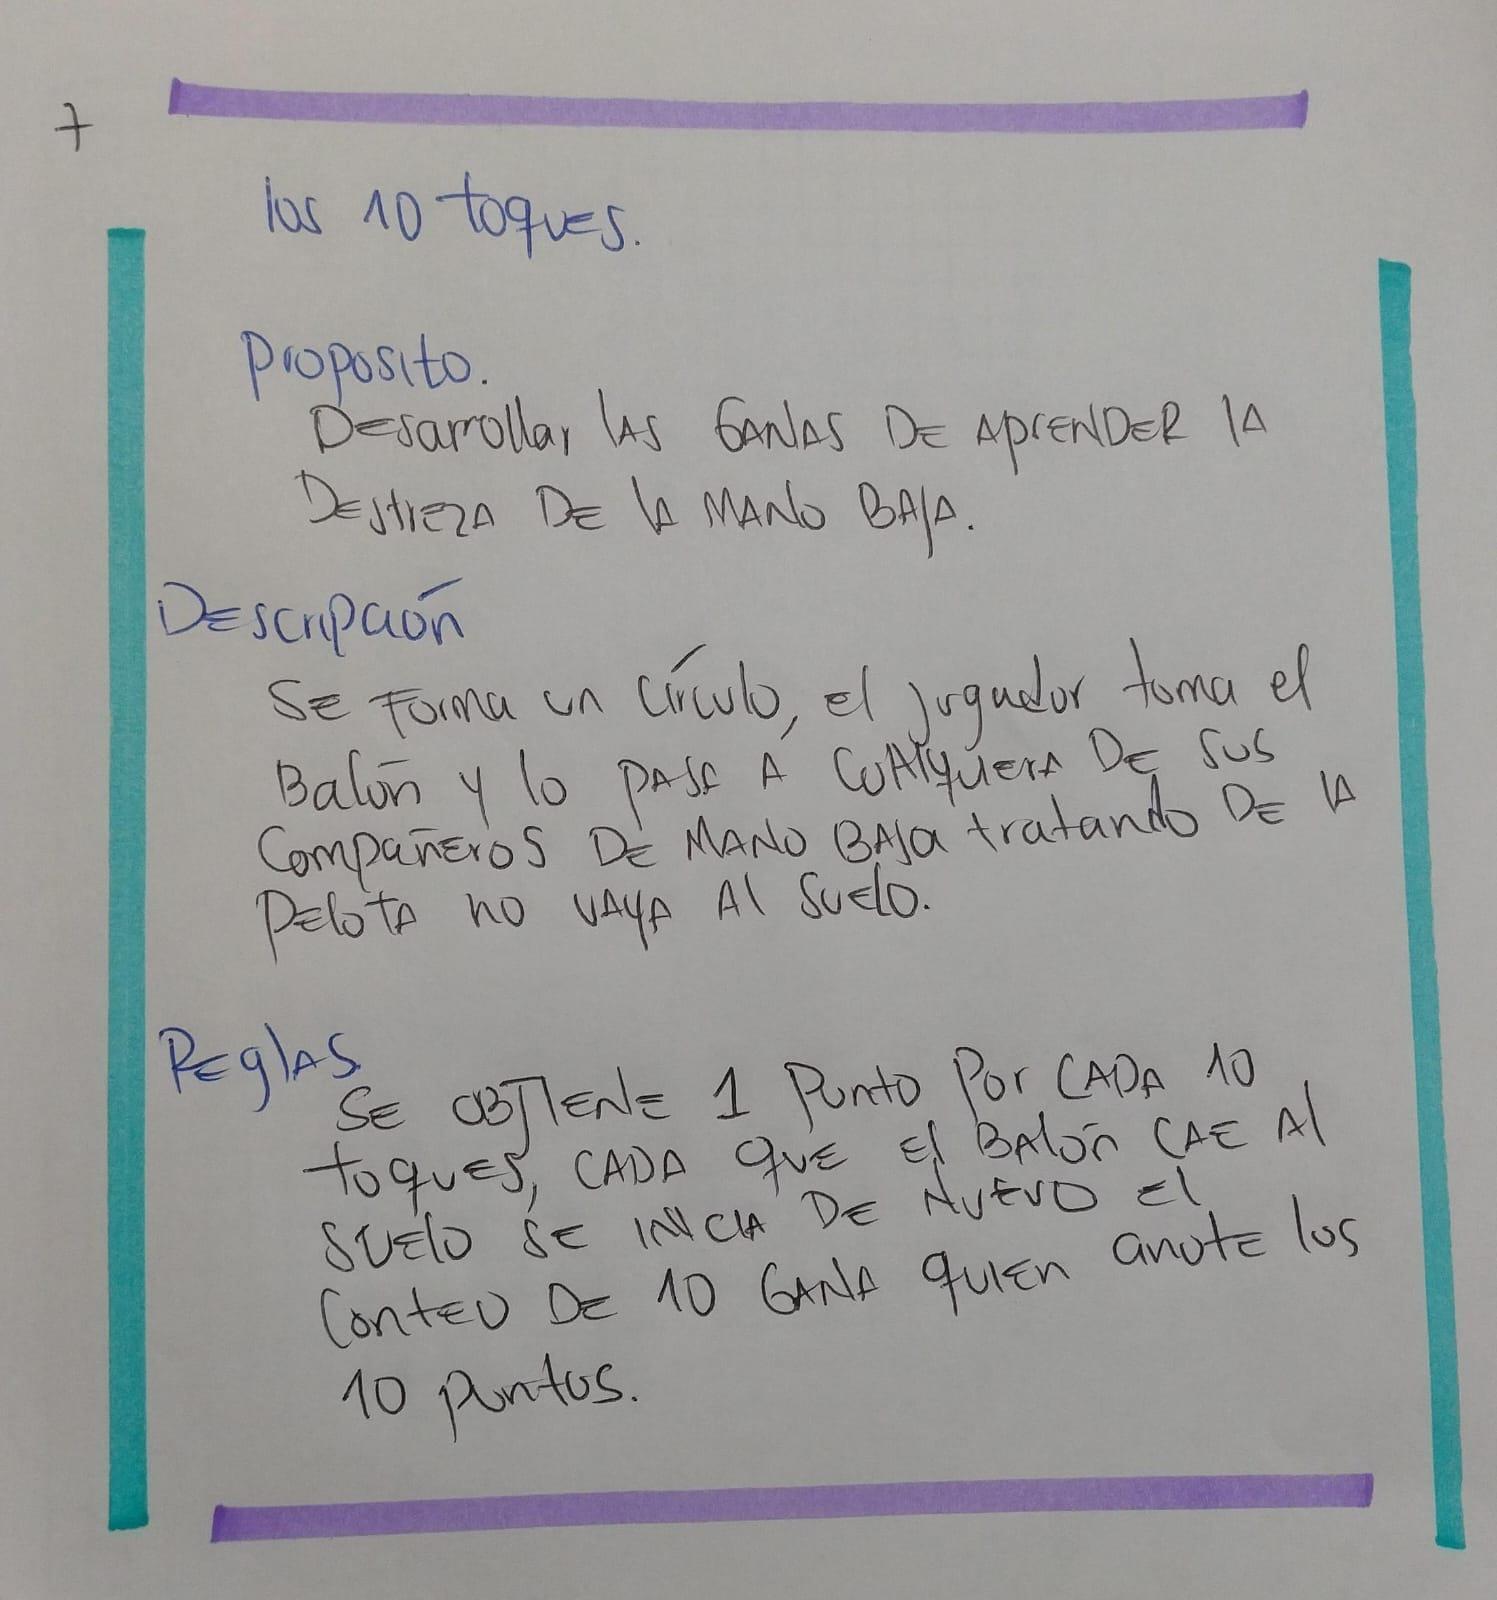 7
los 10 toques.
Proposito.
Desarrollar las ganas de aprender la
Destreza de la mano baja.
Descripción
Se forma un círculo, el jugador toma el
Balón y lo pasa a cualquiera de sus
Compañeros de mano baja tratando de la
pelota no vaya al suelo.
Reglas
Se obtiene 1 punto por cada 10
toques, cada que el balón cae al
suelo se inicia de nuevo el
Conteo de 10 gana quien anote los
10 puntos.